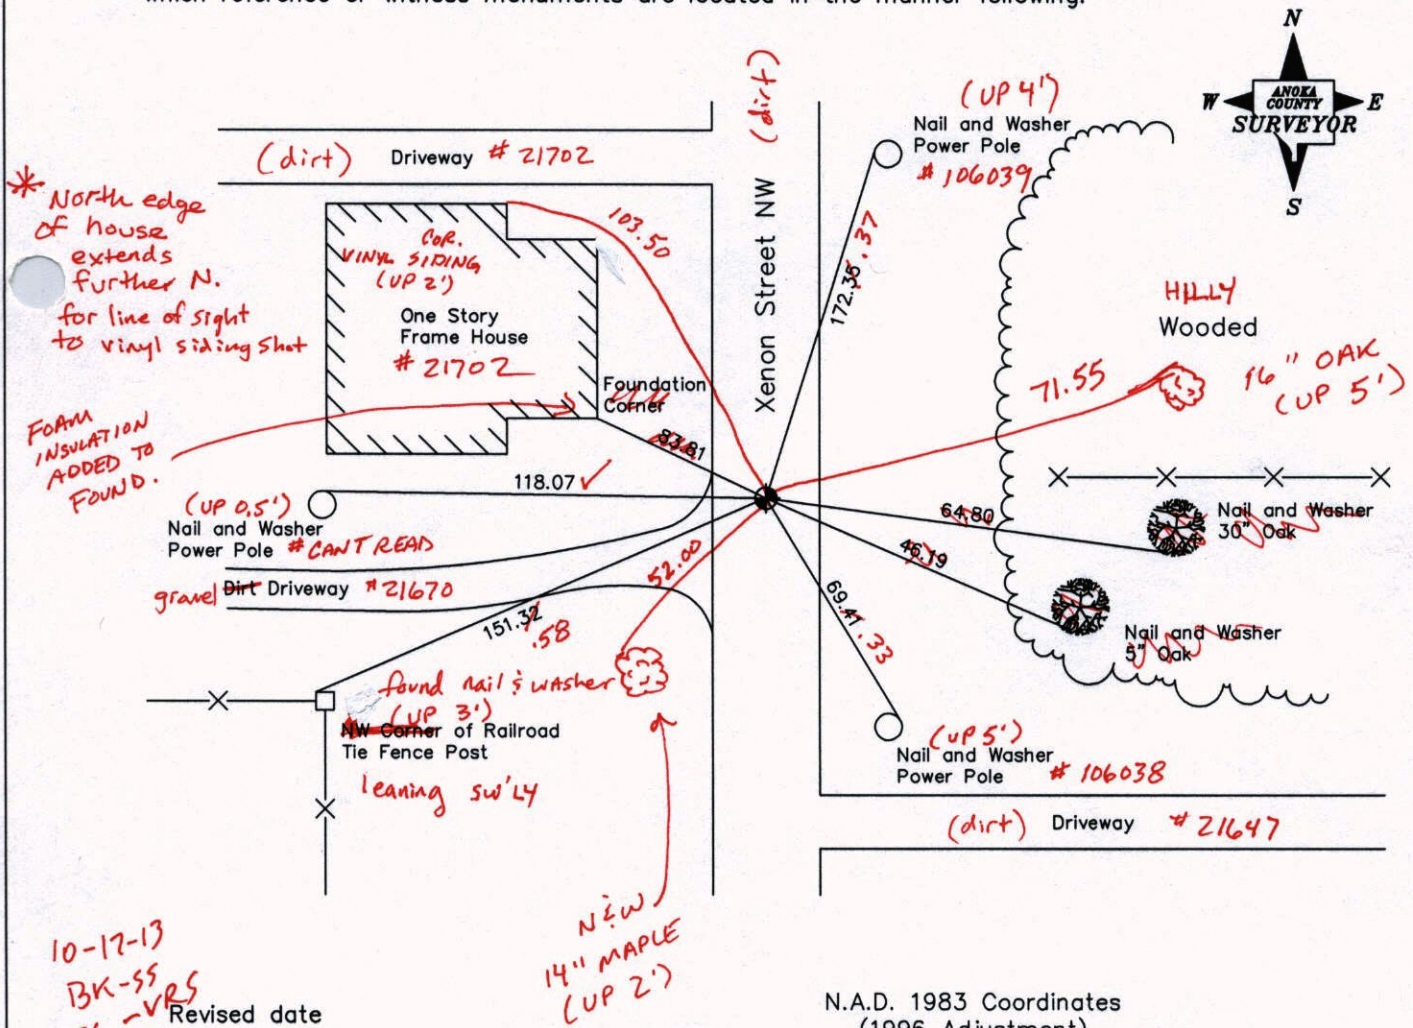 which reference or witness monuments are located in the manner following:
N
W
ANOKA
COUNTY
SURVEYOR
E
S
(dirt)
Xenon Street NW
(UP 4')
Nail and Washer
Power Pole
# 106039
(dirt) Driveway # 21702
* North edge
of house
extends
further N.
for line of sight
to vinyl siding shot
COR.
VINYL SIDING
(UP 2')
One Story
Frame House
# 21702
103.50
172.35 .37
HILLY
Wooded
71.55
16" OAK
(UP 5')
Foundation
Corner
83.81
FOAM
INSULATION
ADDED TO
FOUND.
118.07 ✓
(UP 0.5')
Nail and Washer
Power Pole # CANT READ
gravel Dirt Driveway # 21670
64.80
Nail and Washer
30" Oak
46.19
Nail and Washer
5" Oak
52.00
69.41 .33
151.32 .58
found nail & washer
(UP 3')
NW Corner of Railroad
Tie Fence Post
leaning SW'LY
(UP 5')
Nail and Washer
Power Pole # 106038
(dirt) Driveway # 21647
N&W
14" MAPLE
(UP 2')
10-17-13
BK-SS
-VRS
Revised date
N.A.D. 1983 Coordinates
(1996 Adjustment)